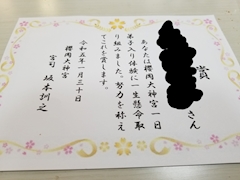 賞
さん
あなたは櫻岡大神宮一日
弟子入り体験に一生懸命取
り組みました。努力を称え
てこれを賞します。
令和五年一月三十日
櫻岡大神宮
宮司 坂本訓之